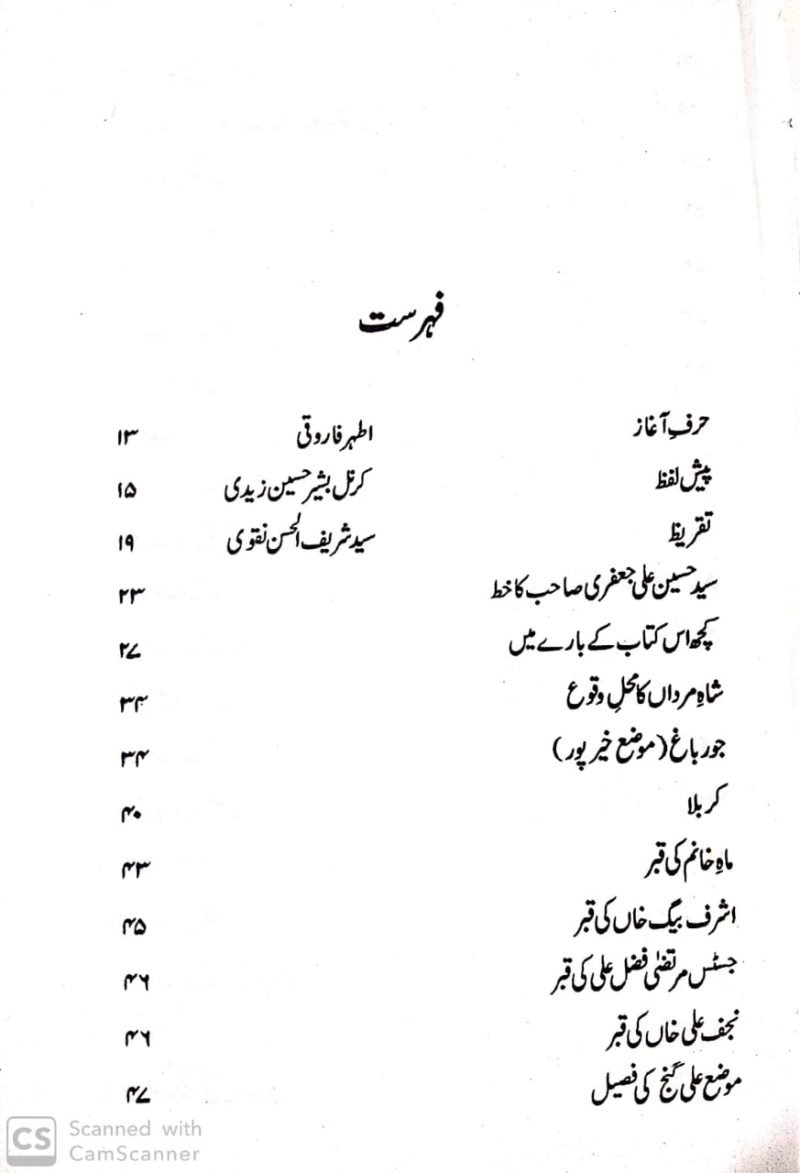 فہرست
حرفِ آغاز اطہر فاروقی ۱۳
پیش لفظ کرنل بشیر حسین زیدی ۱۵
تقریظ سید شریف الحسن نقوی ۱۹
سید حسین علی جعفری صاحب کا خط ۲۳
کچھ اس کتاب کے بارے میں ۲۷
شاہِ مرداں کا محلِ وقوع ۳۴
جور باغ (موضع خیر پور) ۳۴
کربلا ۴۰
ماہ خانم کی قبر ۴۳
اشرف بیگ خاں کی قبر ۴۵
جسٹس مرتضیٰ فضل علی کی قبر ۴۶
نجف علی خاں کی قبر ۴۶
موضع علی گنج کی فصیل ۴۷
CS Scanned with
CamScanner